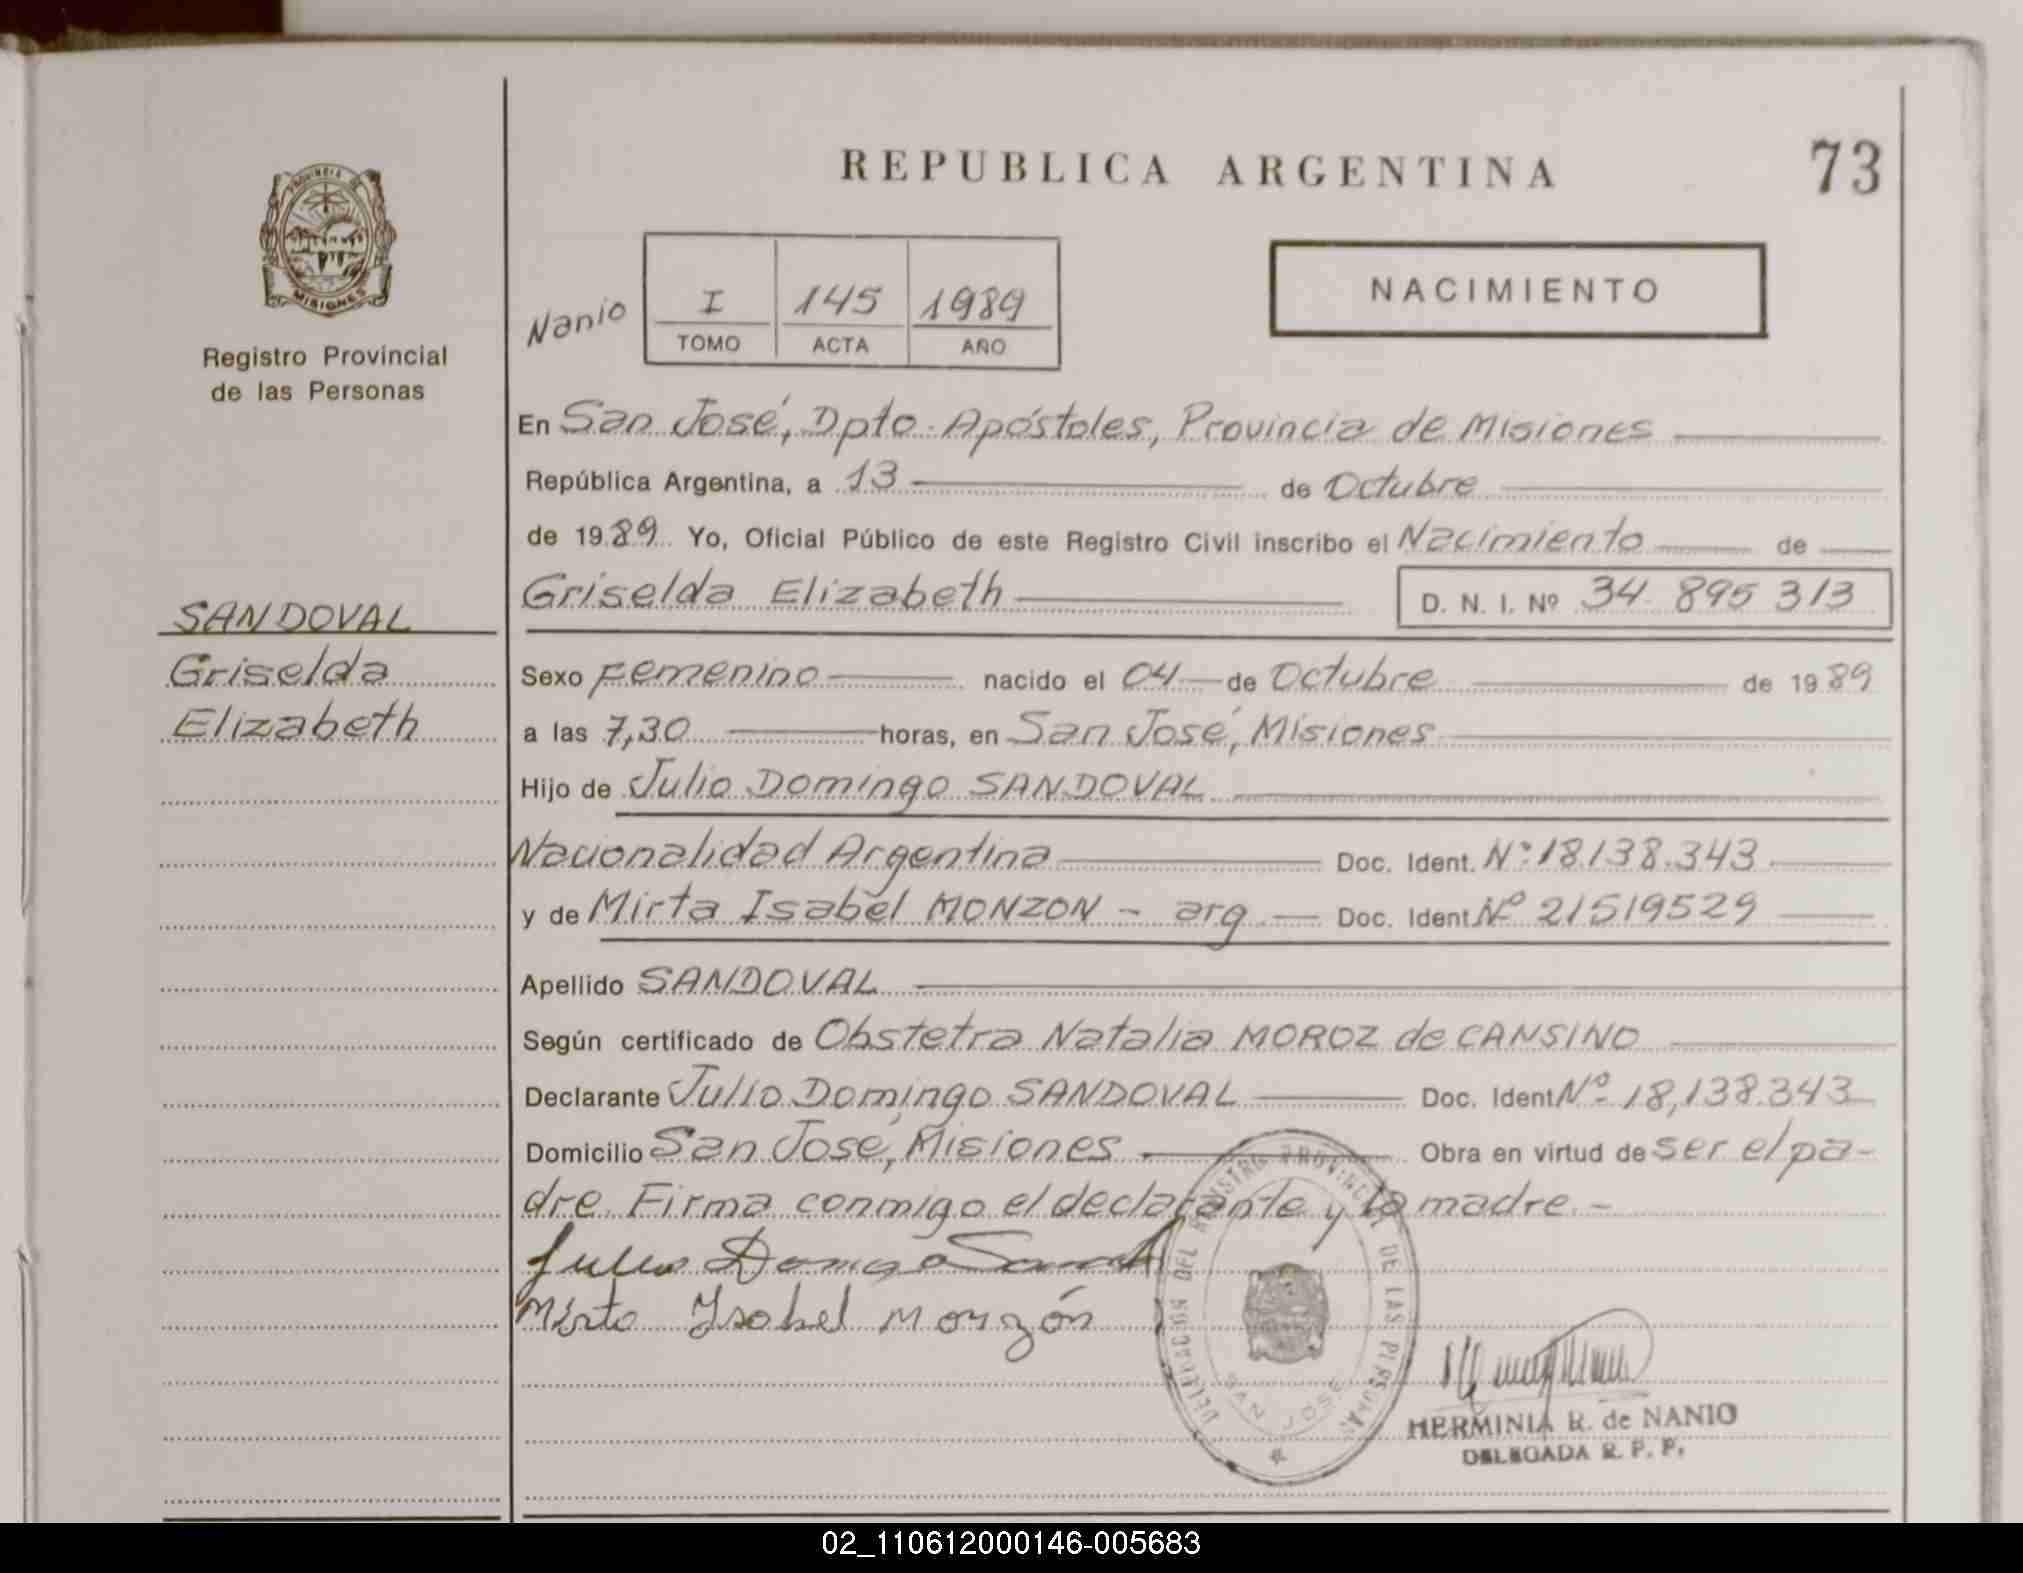 REPUBLICA ARGENTINA
73
PROVINCIA DE
MISIONES
Registro Provincial
de las Personas
Nanio
I 145 1989
TOMO ACTA AÑO
NACIMIENTO
En San José, Dpto. Apóstoles, Provincia de Misiones
República Argentina, a 13 de Octubre
de 1989 Yo, Oficial Público de este Registro Civil inscribo el Nacimiento de
Griselda Elizabeth D. N. I. Nº 34 895 313
SANDOVAL
Griselda
Elizabeth
Sexo Femenino nacido el 04 de Octubre de 1989
a las 7,30 horas, en San José, Misiones
Hijo de Julio Domingo SANDOVAL
Nacionalidad Argentina Doc. Ident. Nº 18.138.343
y de Mirta Isabel MONZON - arg Doc. Ident Nº 21519529
Apellido SANDOVAL
Según certificado de Obstetra Natalia MOROZ de CANSINO
Declarante Julio Domingo SANDOVAL Doc. Ident Nº 18,138.343
Domicilio San José, Misiones Obra en virtud de ser el pa-
dre. Firma conmigo el declarante y la madre.-
Julio Domingo
Mirta Isabel Monzón
DELEGACION DEL REGISTRO PROVINCIAL DE LAS PERSONAS
SAN JOSE
HERMINIA R. de NANIO
DELEGADA R. P. P.
02_110612000146-005683